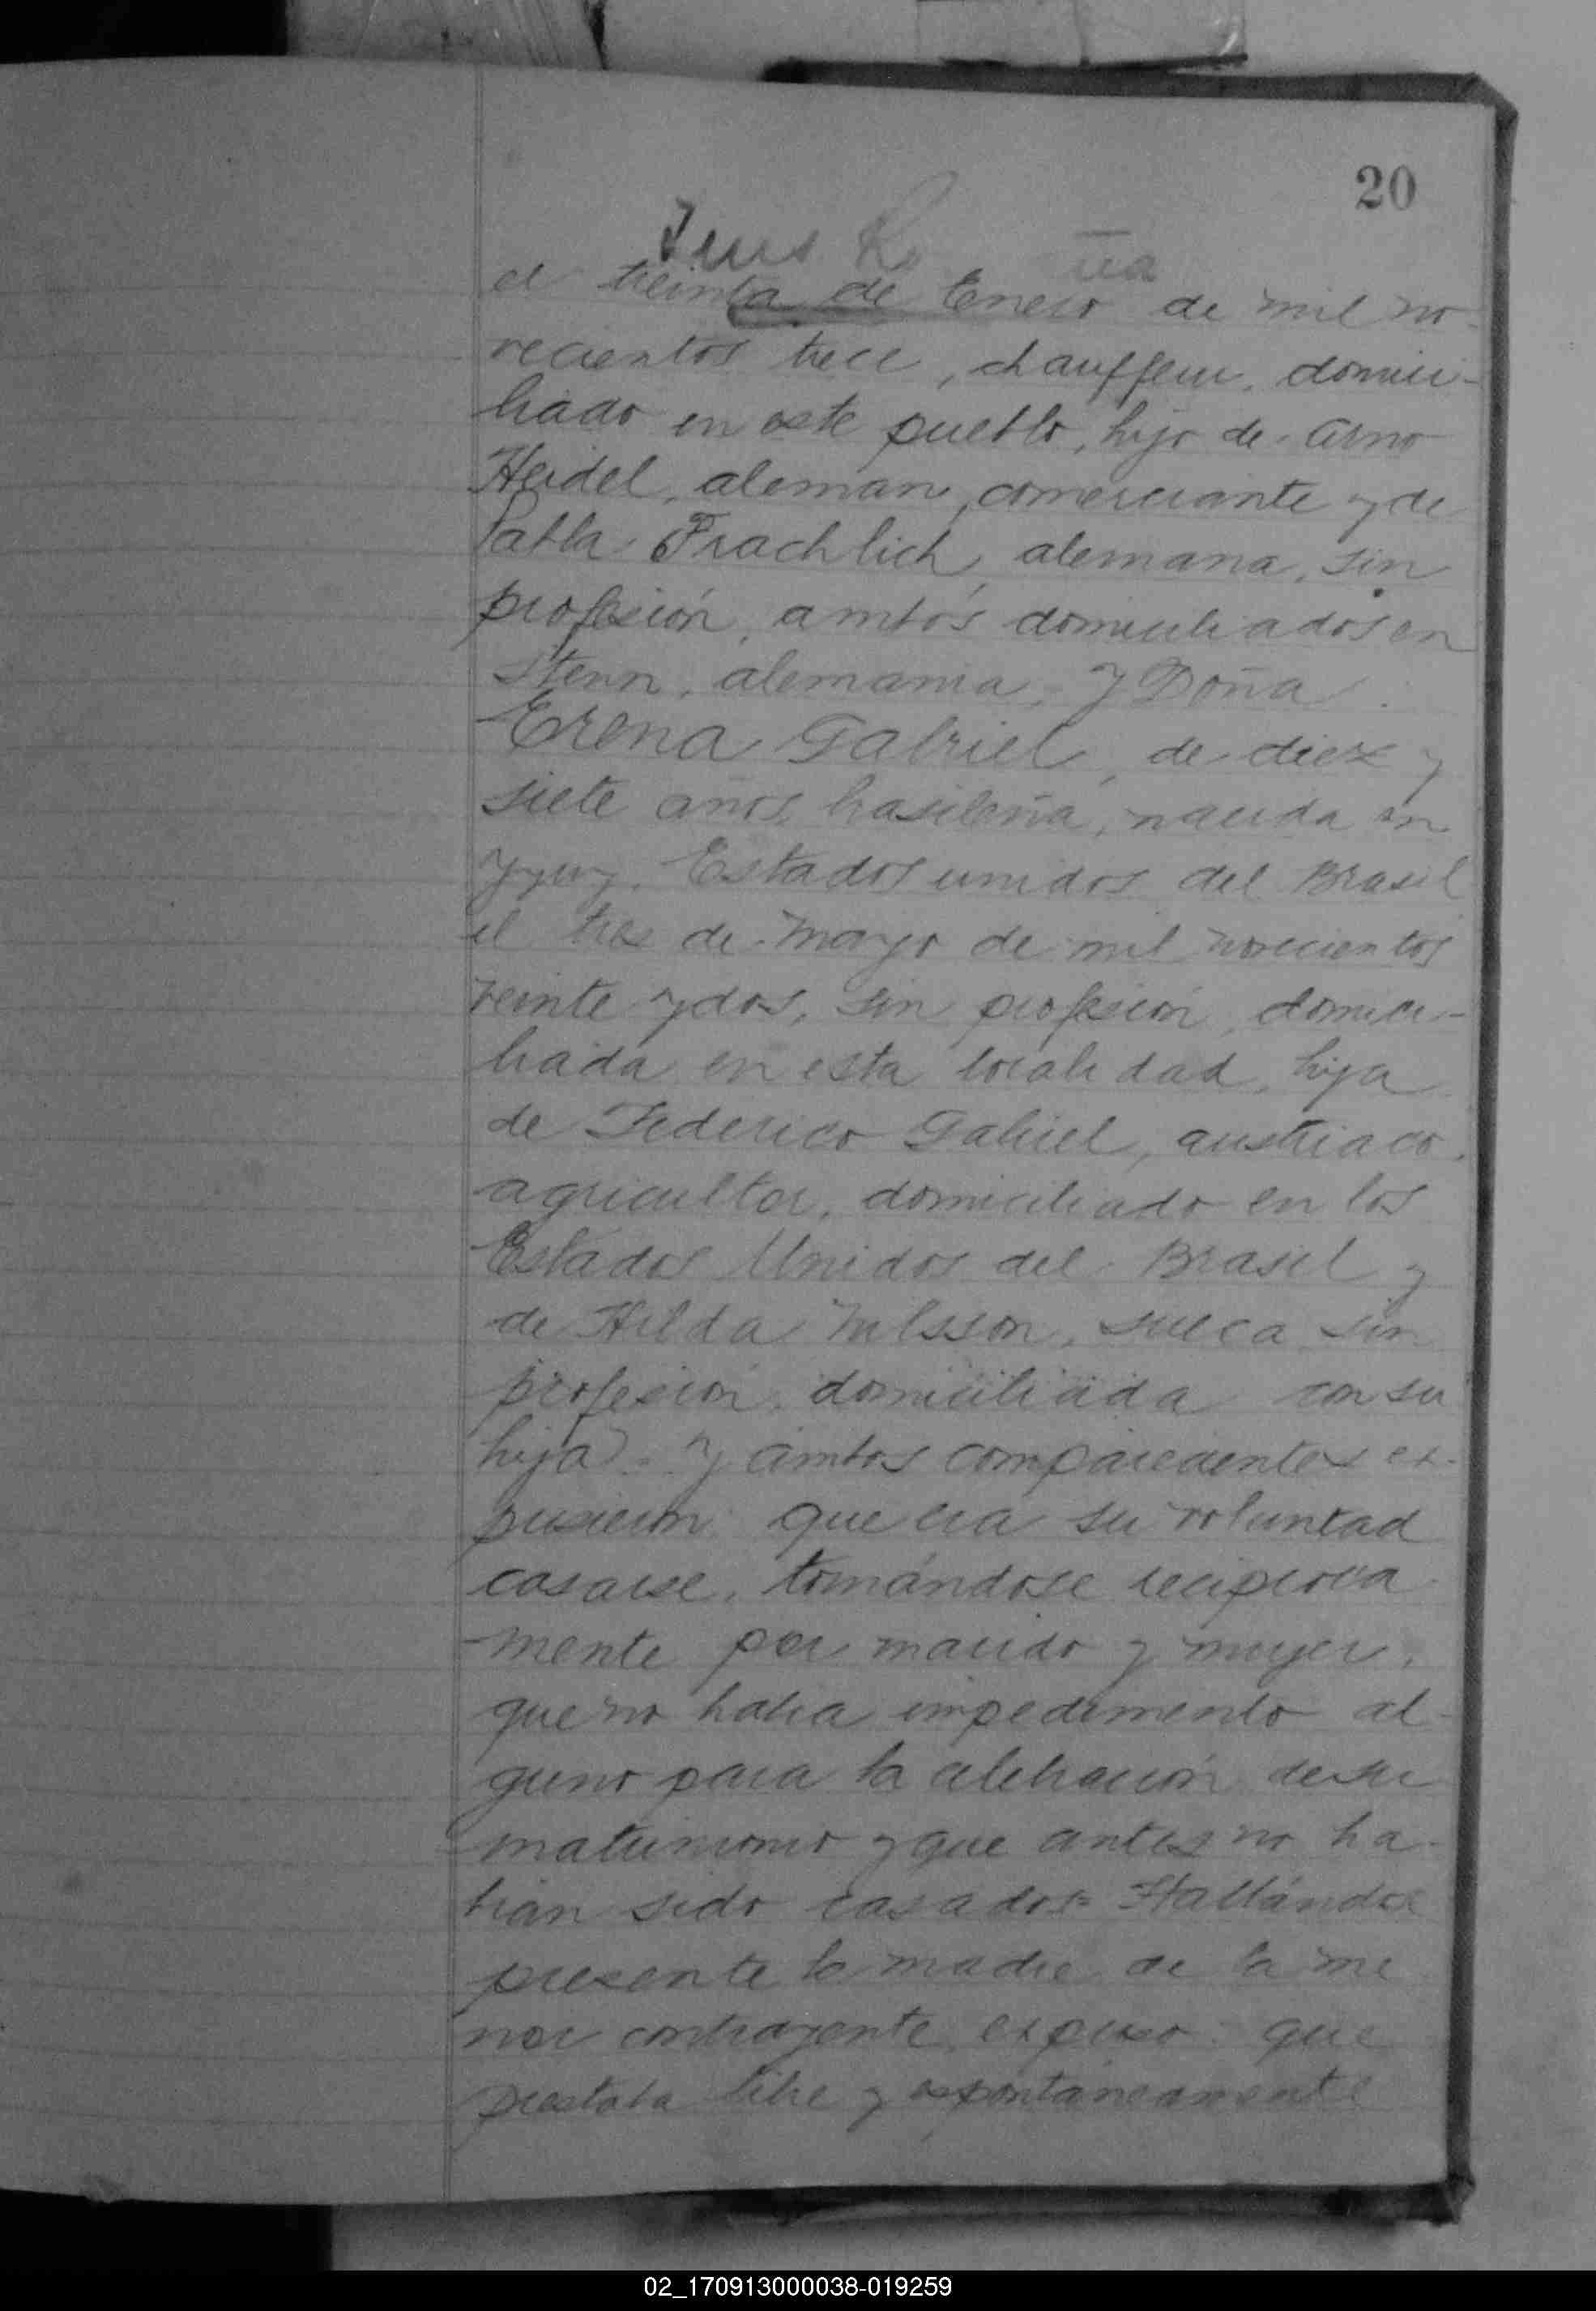 20
el treinta de Enero de mil no-
vecientos trece, chauffeur, domici-
liado en este pueblo, hijo de Arno
Heidel, aleman, comerciante y de
Pabla Frachlich, alemana, sin
profesión, ambos domiciliados en
Stenn, alemania, y Doña
Erena Gabriel, de diez y
siete años, brasileña, nacida en
Yyuy, Estados unidos del Brasil
el tres de Mayo de mil novecientos
veinte y dos, sin profesión, domici-
liada en esta localidad, hija
de Federico Gabriel, austriaco,
agricultor, domiciliado en los
Estados Unidos del Brasil y
de Hilda Nilsson, sueca, sin
profesión, domiciliada con su
hija.- Y ambos comparecientes ex-
pusieron: que era su voluntad
casarse, tomándose reciproca
mente por marido y mujer,
que no habia impedimento al-
guno para la celebración de su
matrimonio y que antes no ha-
bian sido casados= Hallándose
presente la madre de la me
nor contrayente, expuso: que
prestaba libre y espontáneamente
02_170913000038-019259